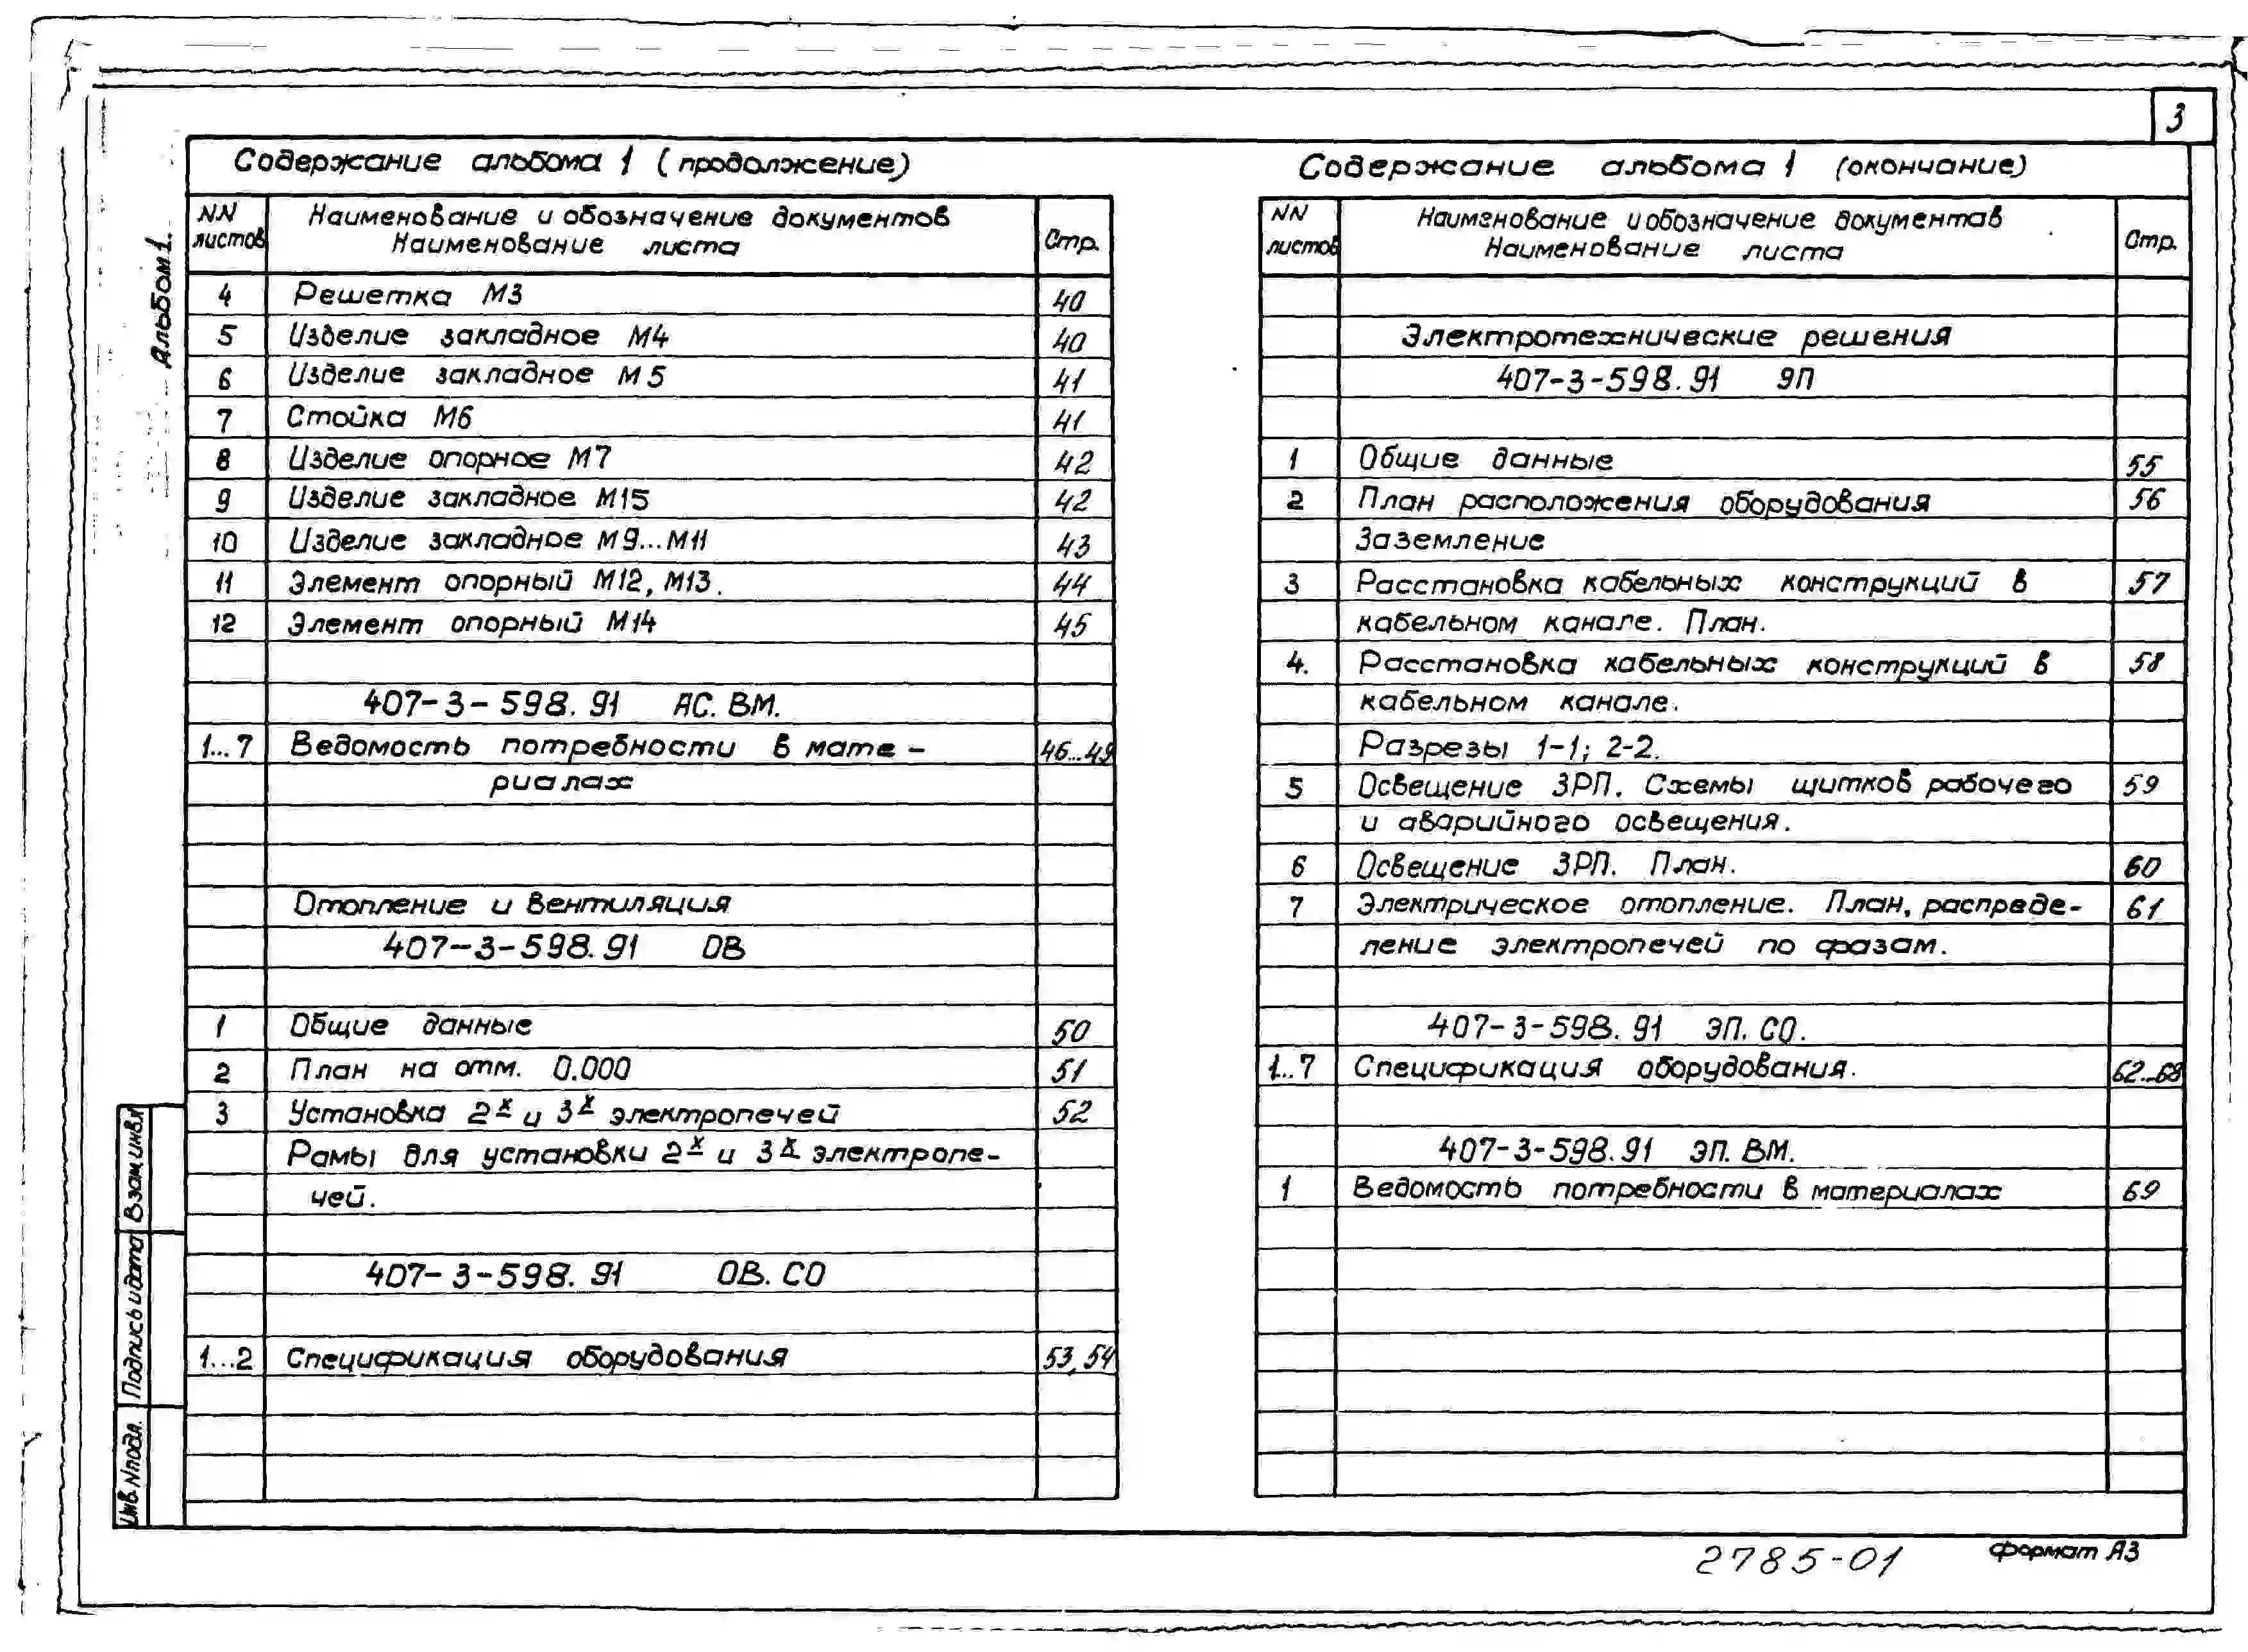 3
Альбом 1.
Содержание альбома 1 (продолжение)
NN листов
Наименование и обозначение документов
Наименование листа
Стр.
4 Решетка М3 40
5 Изделие закладное М4 40
6 Изделие закладное М5 41
7 Стойка М6 41
8 Изделие опорное М7 42
9 Изделие закладное М15 42
10 Изделие закладное М9...М11 43
11 Элемент опорный М12, М13. 44
12 Элемент опорный М14 45
407-3-598.91 АС.ВМ.
1...7 Ведомость потребности в мате- 46...49
риалах
Отопление и вентиляция
407-3-598.91 ОВ
1 Общие данные 50
2 План на отм. 0.000 51
3 Установка 2х и 3х электропечей 52
Рамы для установки 2х и 3х электропе-
чей.
407-3-598.91 ОВ.СО
1...2 Спецификация оборудования 53,54
Содержание альбома 1 (окончание)
NN листов
Наименование и обозначение документав
Наименование листа
Стр.
Электротехнические решения
407-3-598.91 ЭП
1 Общие данные 55
2 План расположения оборудования 56
Заземление
3 Расстановка кабельных конструкций в 57
кабельном канале. План.
4. Расстановка кабельных конструкций в 58
кабельном канале.
Разрезы 1-1; 2-2.
5 Освещение ЗРП. Схемы щитков рабочего 59
и аварийного освещения.
6 Освещение ЗРП. План. 60
7 Электрическое отопление. План, распреде- 61
ление электропечей по фазам.
407-3-598.91 ЭП.СО.
1..7 Спецификация оборудования. 62...68
407-3-598.91 ЭП.ВМ.
1 Ведомость потребности в материалах 69
Взам.инв.N
Подпись и дата
Инв.N подл.
2785-01
формат А3